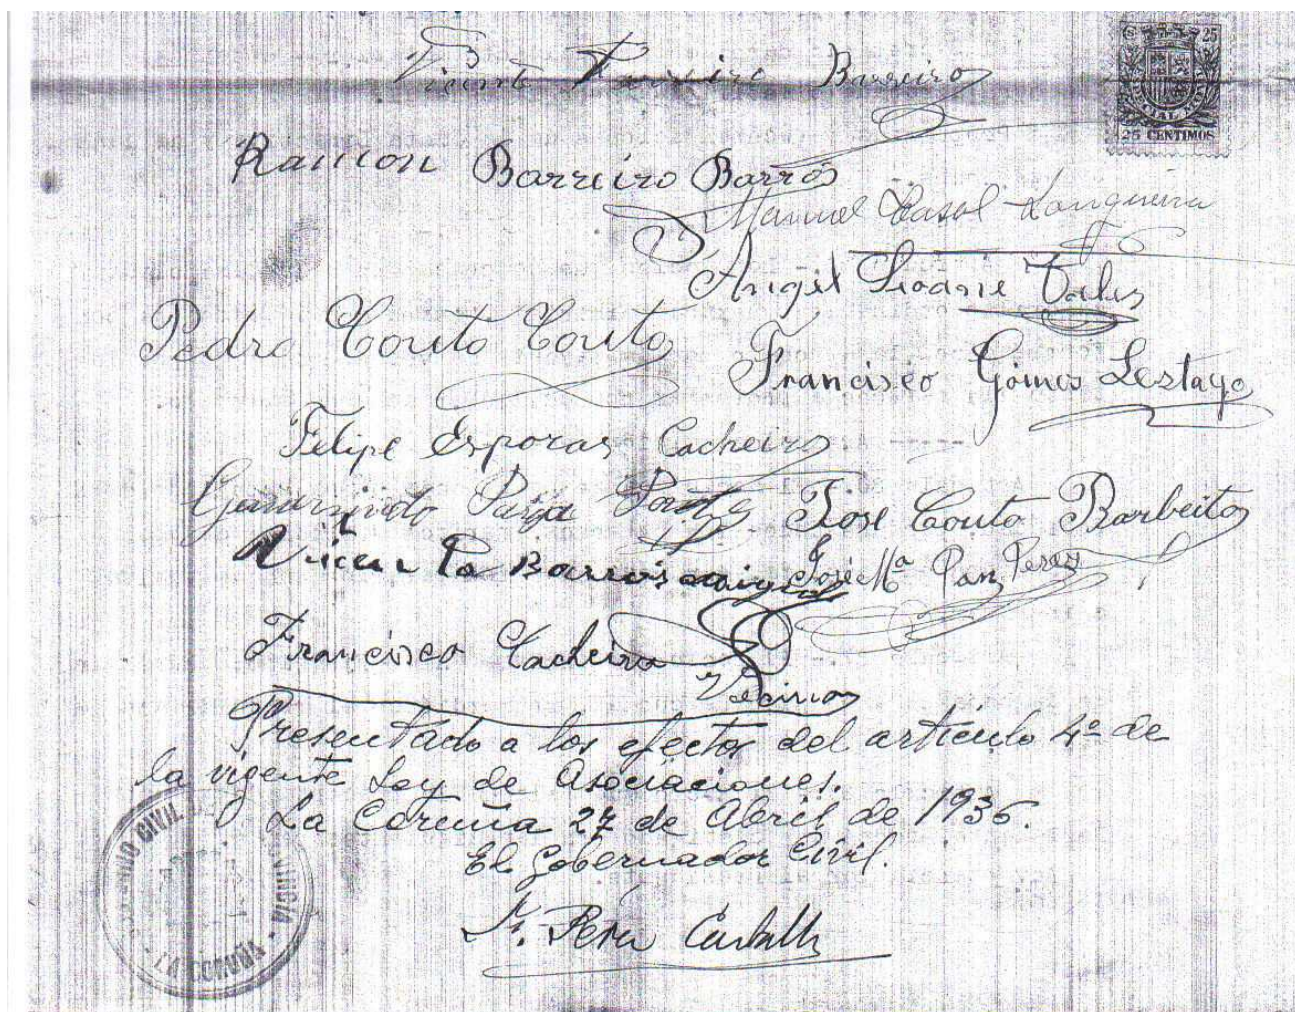 Vicente Barreiro
25
25 CENTIMOS
Ramon Barreiro Barros
Manuel Casal Longueira
Angel Seoane
Pedro Couto Couto
Francisco Gómes Lestayo
Felipe Esporas Cacheiro
Parga
Jose Couto Barbeito
Barros
José Mª Pan Perez
Francisco Cacheiro
Vecino
Presentado a los efectos del articulo 4º de
la vigente Ley de Asociaciones.
La Coruña 27 de Abril de 1936.
El Gobernador Civil.
CIVIL
LA CORUÑA